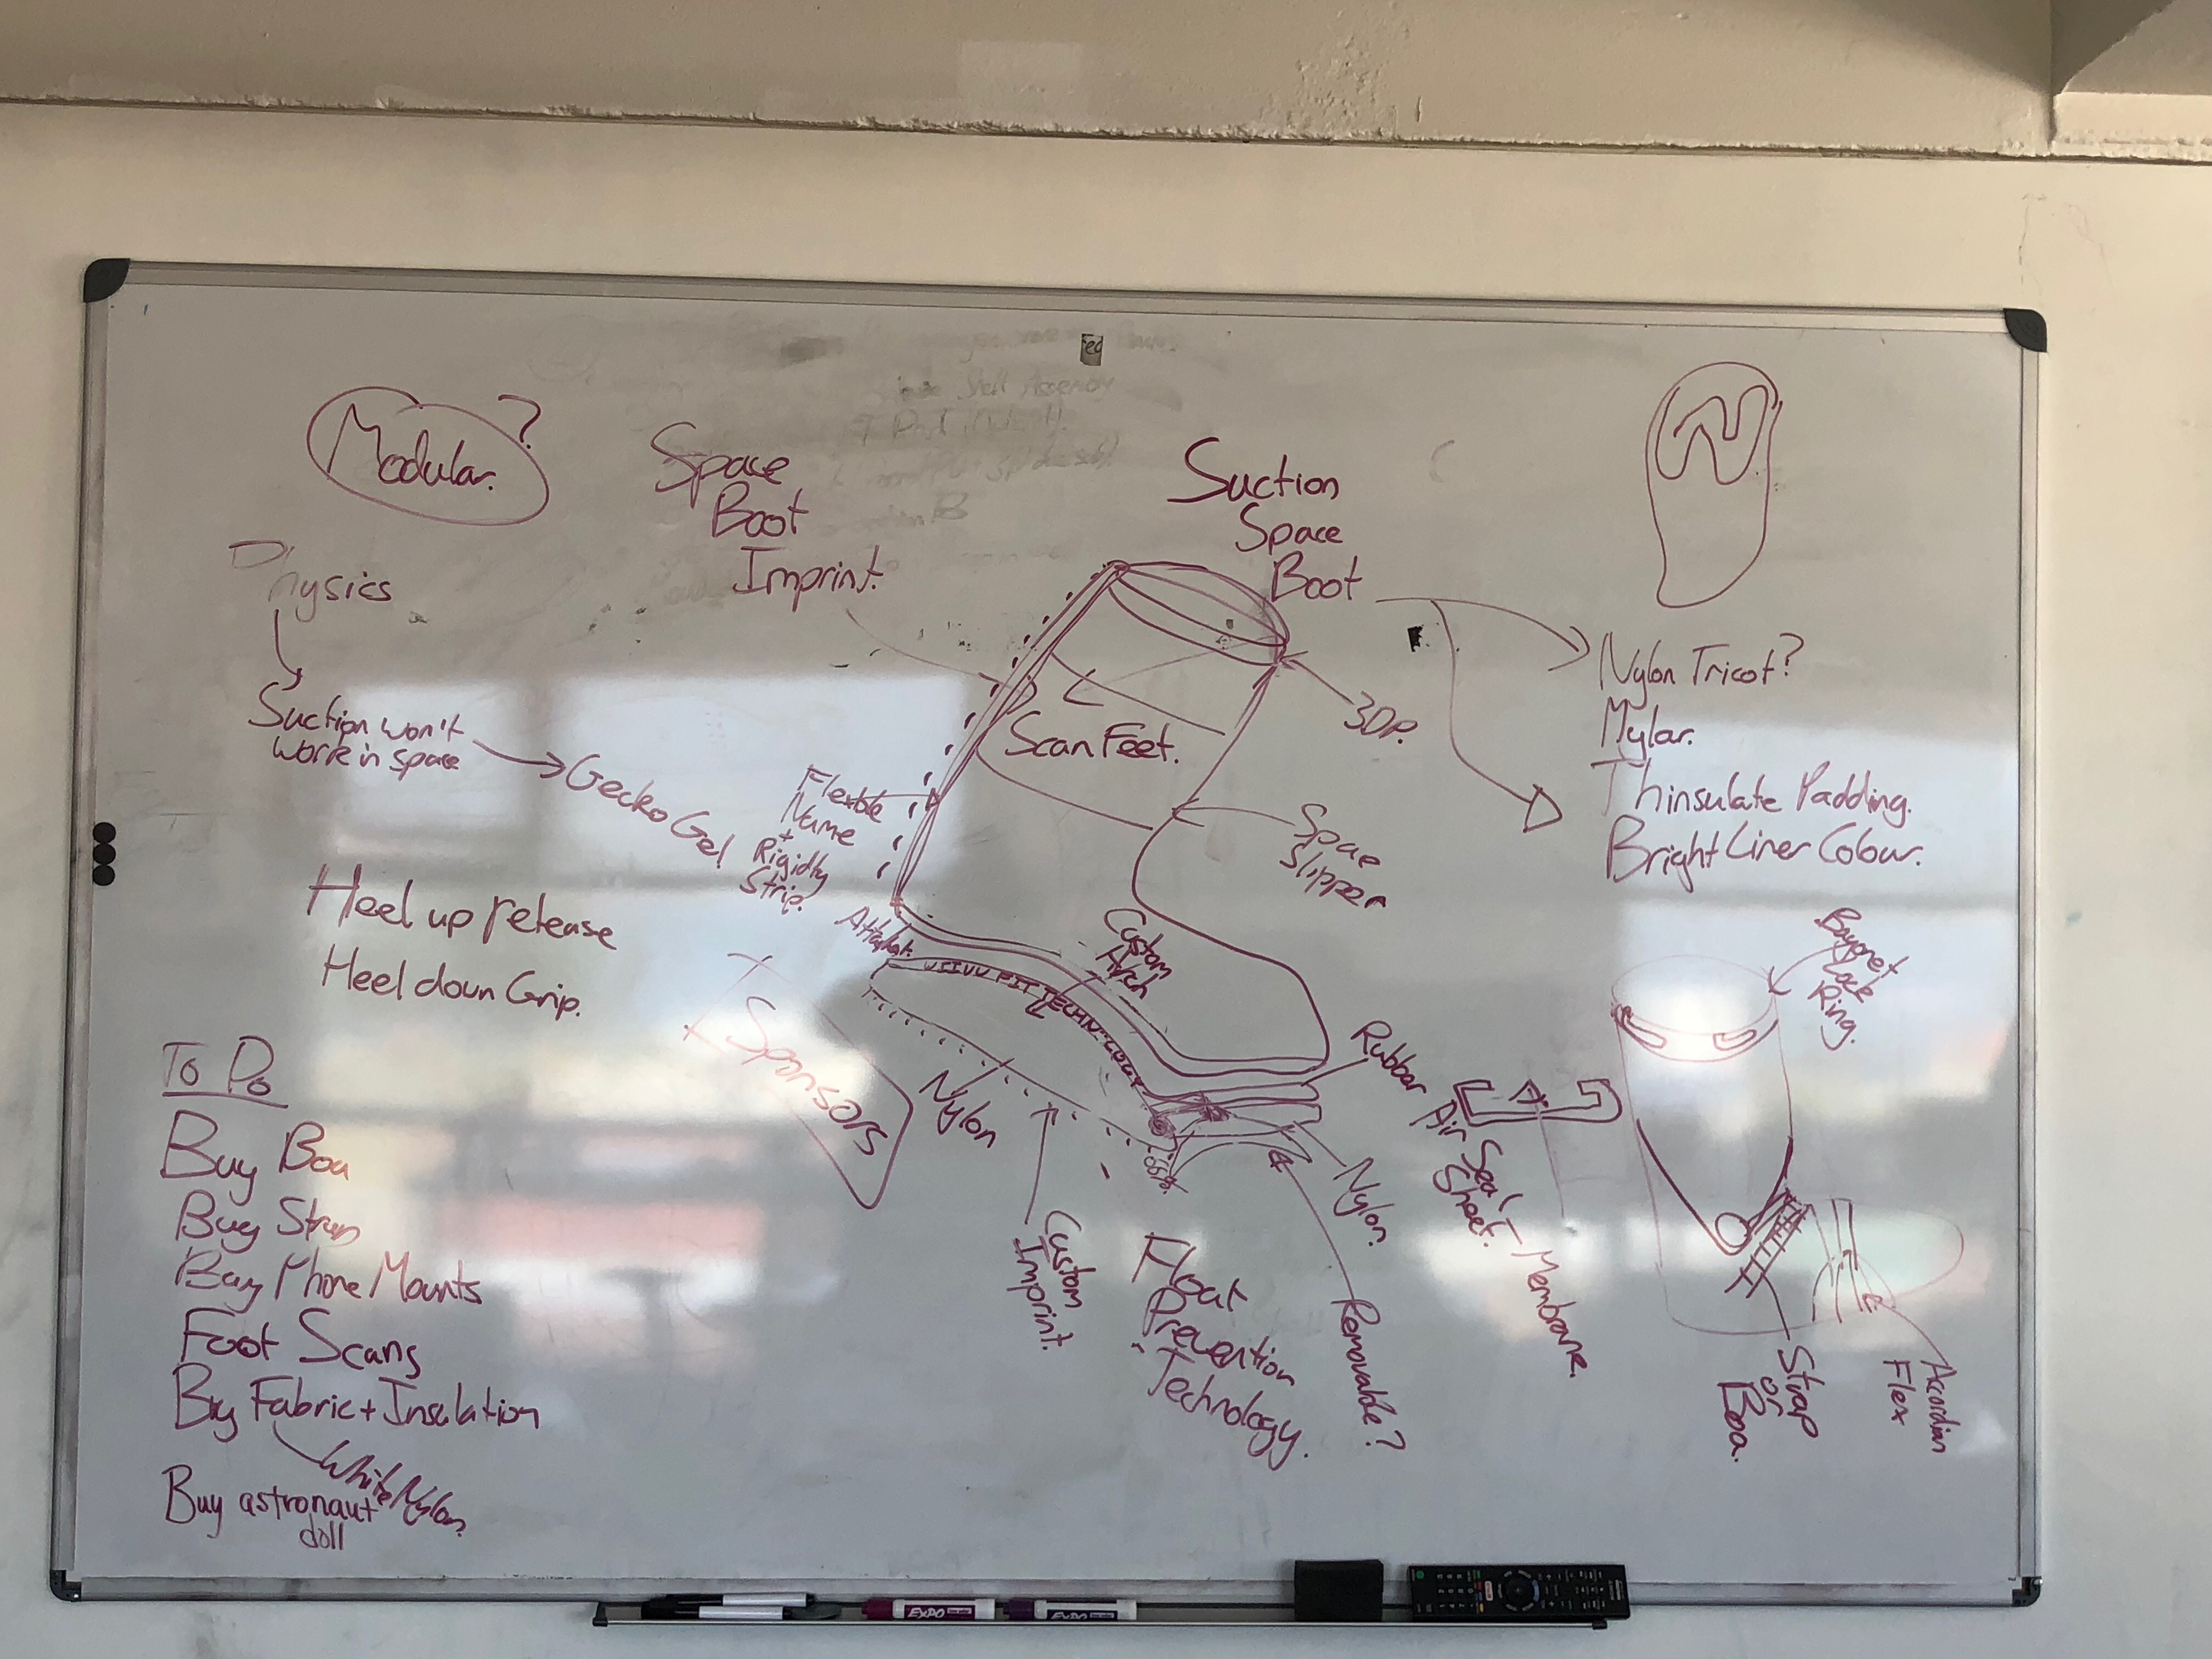 Modular.
?
Space
Boot
Imprint.
Suction
Space
Boot
N
Physics
Suction won't
work in space
Gecko Gel
Flexible
Name
+
Rigidty
Strip.
Scan Feet.
3DP.
Nylon Tricot?
Mylar.
Thinsulate Padding.
Bright Liner Colour.
Space
Slipper
Heel up release
Heel down Grip.
Custom
Arch
FIT TECHNOLOGY
Sponsors
Nylon
Custom
Imprint.
Rubber
Air Seal
Sheet.
- Membrane.
Nylon.
Removable?
Float
Prevention
Technology.
Bayonet
Lock
Ring.
Strap
or
Boa.
Accordian
Flex
To Do
Buy Boa
Buy Strap
Buy Phone Mounts
Foot Scans
Buy Fabric + Insulation
White Nylon.
Buy astronaut
doll
EXPO
EXPO